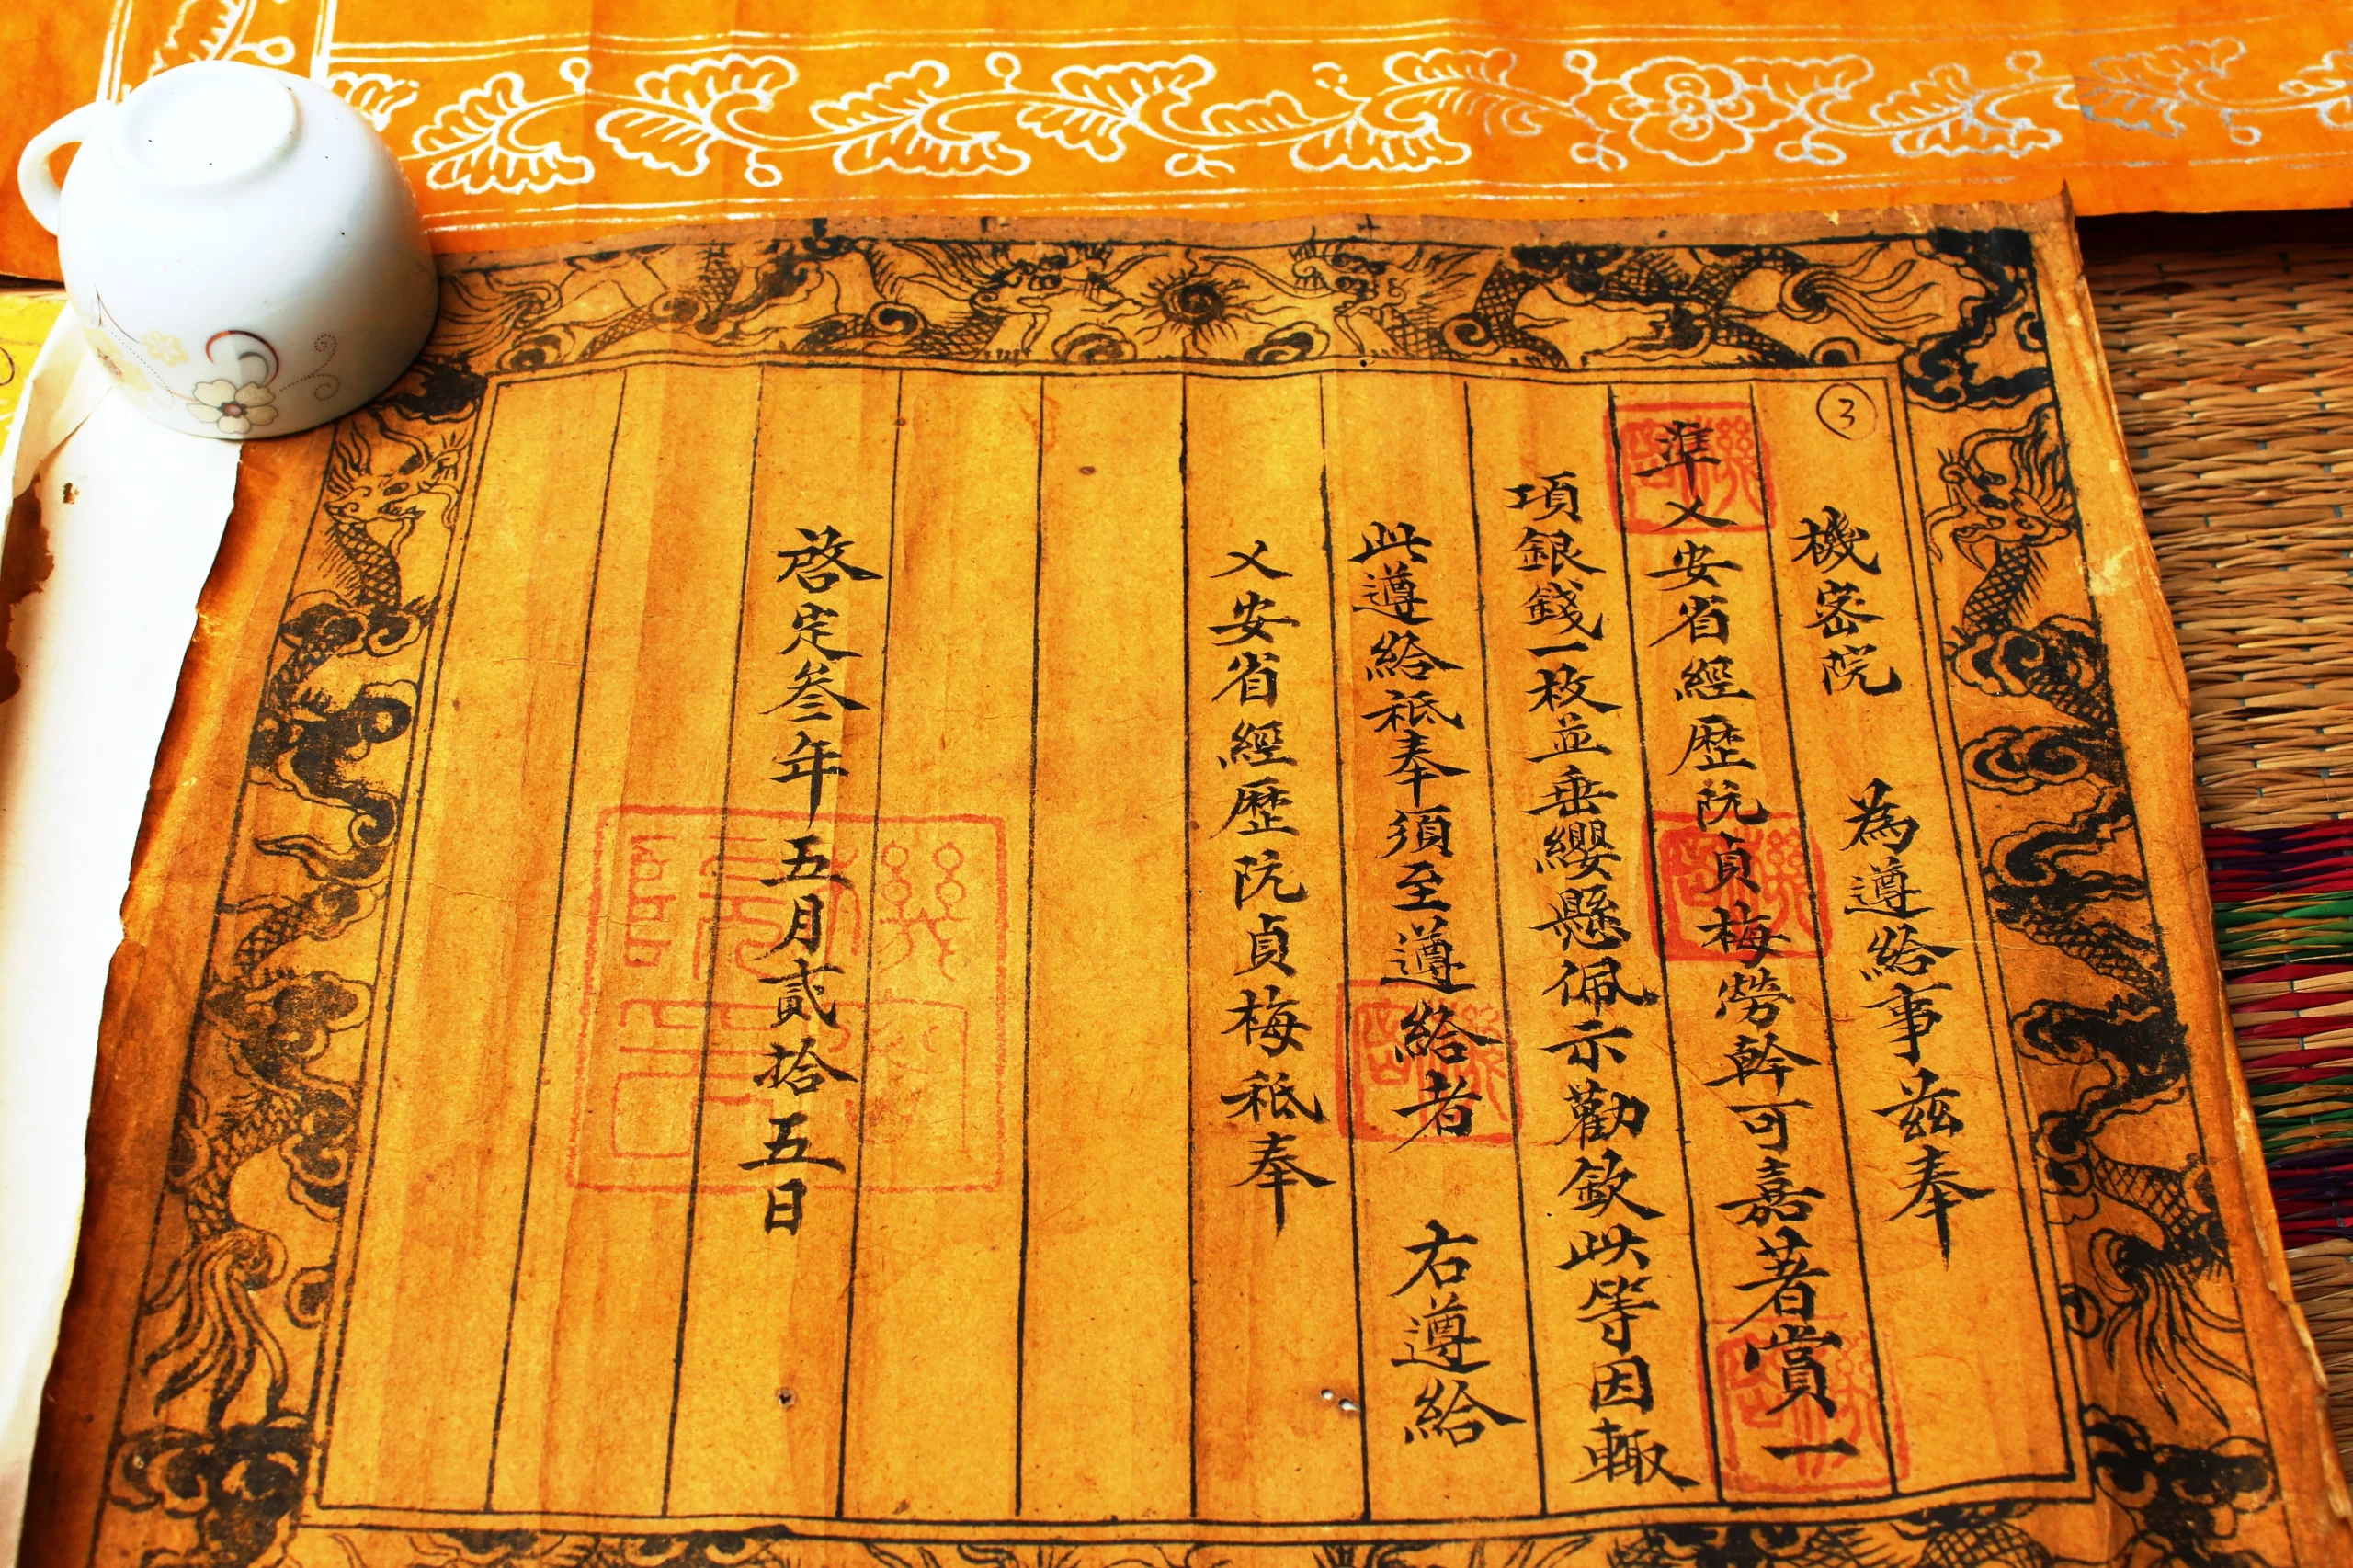 ③
機密院 為遵給事茲奉
準乂安省經歷阮貞梅勞幹可嘉著賞一
項銀錢一枚並垂纓懸佩示勸欽此等因輙
此遵給祗奉須至遵給者 右遵給
乂安省經歷阮貞梅祗奉
啓定叄年五月貳拾五日